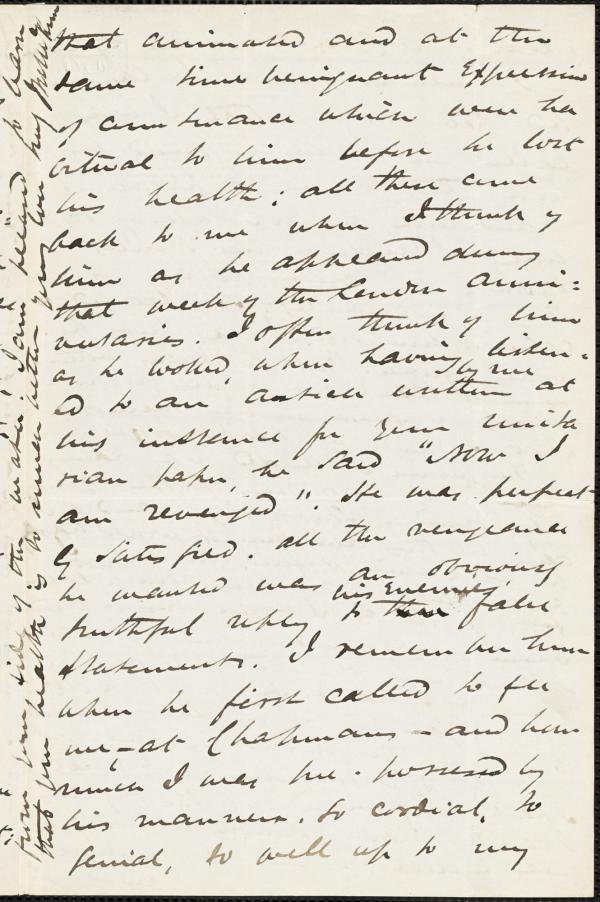 that animated and at the
same time benignant Expression
of countenance which were ha
bitual to him before he lost
his health; all these come
back to me when I think of
him as he appeared during
that week of the London Anni=
versaries. I often think of him
as he looked, when having listen=
ed to an article written by me at
his instance for your Unita
rian paper, he said "Now I
am revenged". He was perfect
ly satisfied. all the vengeance
he wanted was an obvious
truthful reply to his Enemies' false
statements. I remember him
when he first called to see
me, at Chapmans – and how
much I was pre-possessed by
his manners. So cordial, so
genial, so well up to my
from your side of the water. I am pleased to learn
that your health is so much better. Give my love